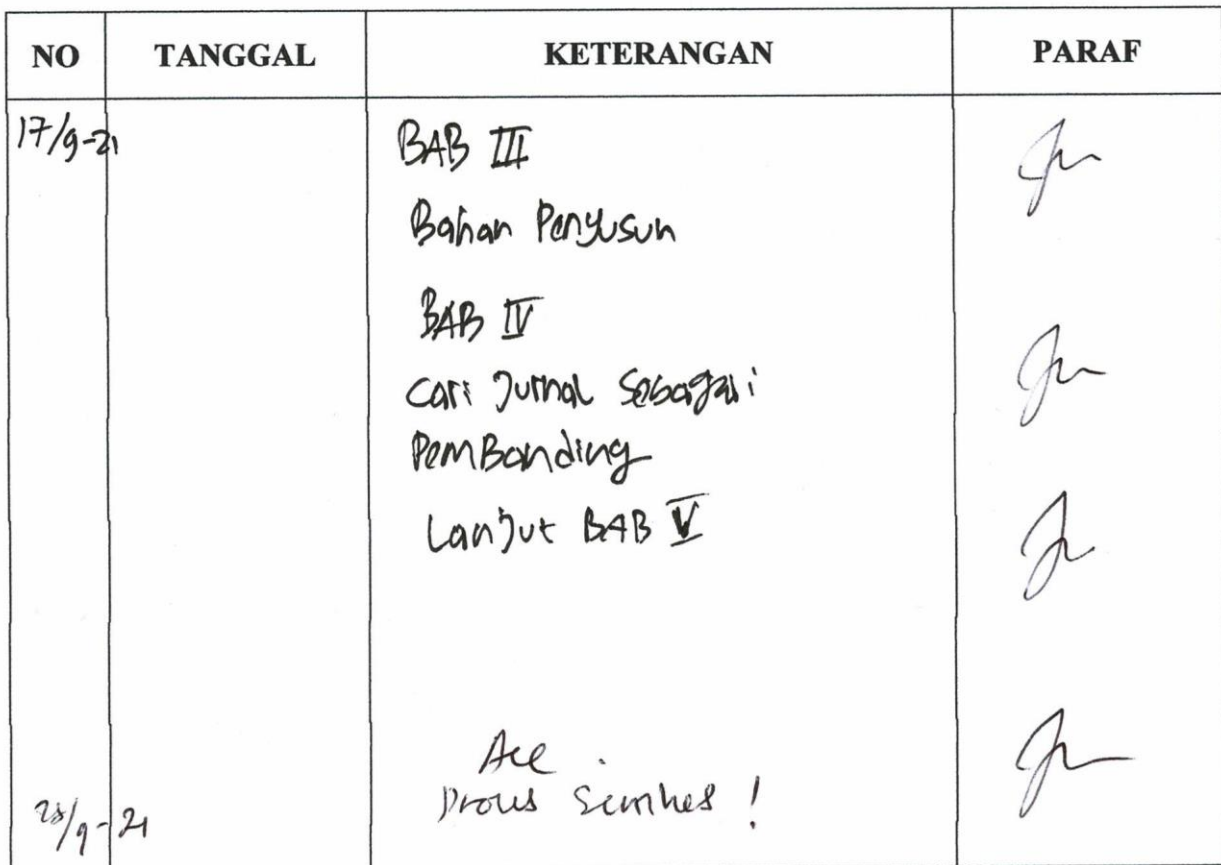 NO TANGGAL KETERANGAN PARAF
17/9-21 BAB III
Bahan Penyusun
BAB IV
Cari Jurnal Sebagai
PemBanding
Lanjut BAB V
Acc.
Proses Semhas !
28/9-21